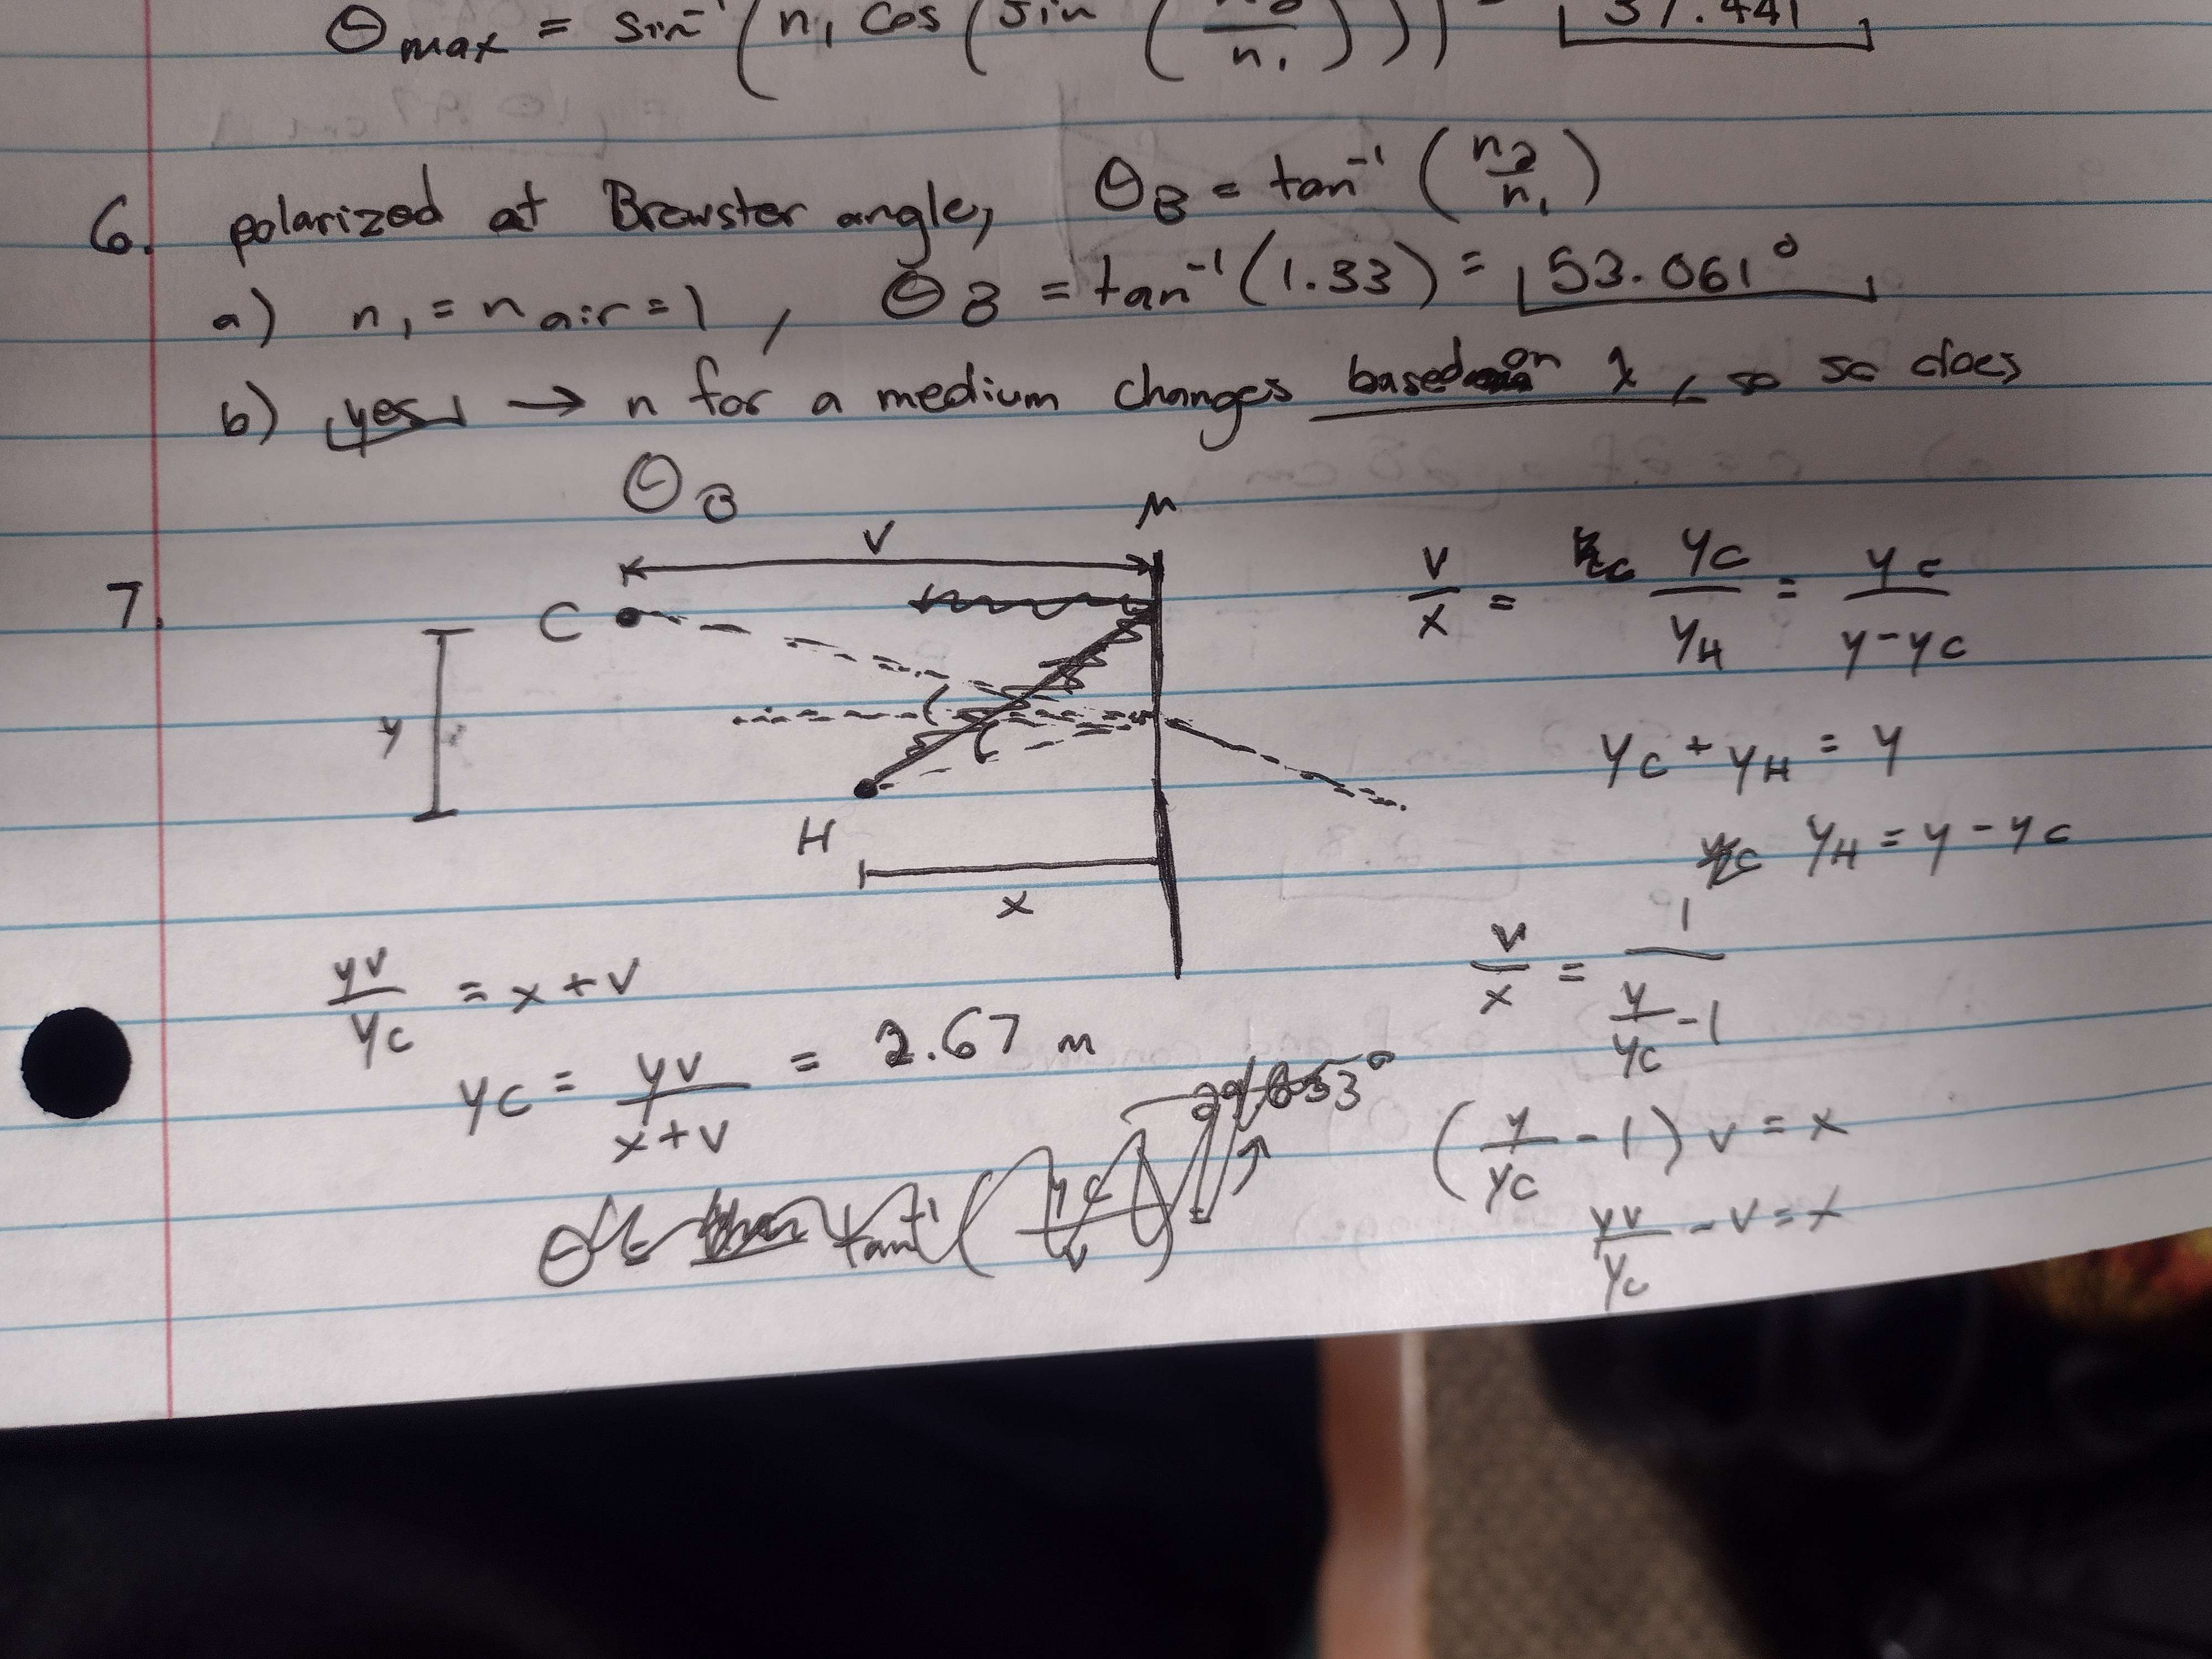 Θmax = sin⁻¹ (n₁ cos (sin (n₂/n₁))) = 37.441
6. polarized at Brewster angle, ΘB = tan⁻¹ (n₂/n₁)
a) n₁ = nair = 1, ΘB = tan⁻¹ (1.33) = 53.061°
b) yes → n for a medium changes based on λ, so so does
ΘB
7.
M
V
C
y
H
x
v/x = yC/yH = yC/(y-yC)
yC + yH = y
yH = y - yC
v/x = 1/(y/yC - 1)
(y/yC - 1) v = x
yv/yC - v = x
yv/yC = x + v
yC = yv/(x+v) = 2.67 m